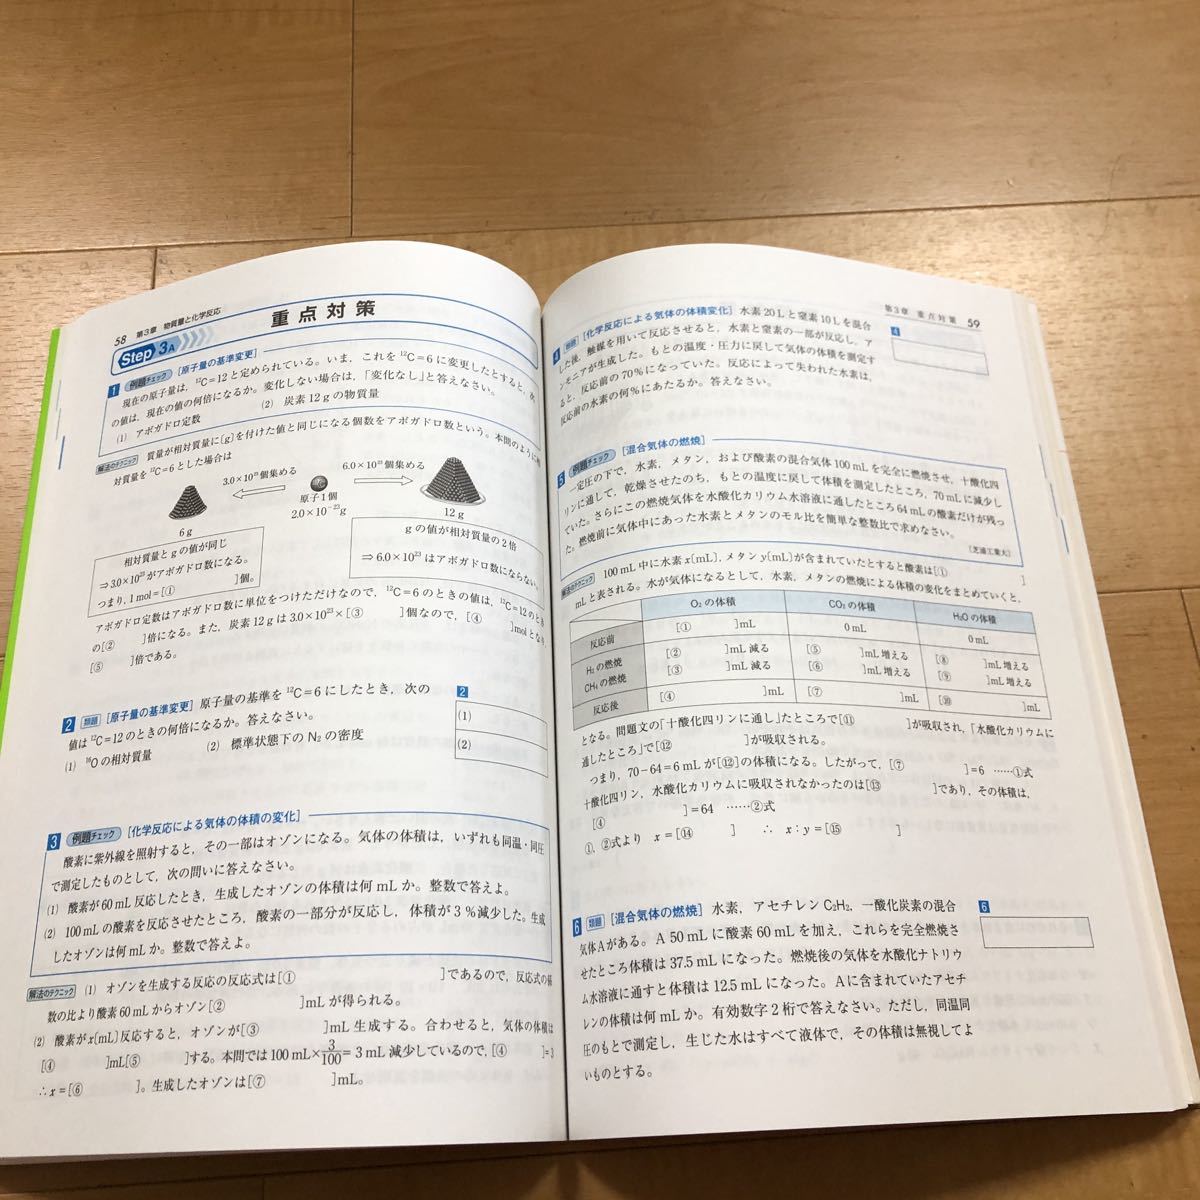 58 第3章 物質量と化学反応
重点対策
Step 3A
1 例題チェック [原子量の基準変更]
現在の原子量は，¹²C＝12と定められている。いま，これを¹²C＝6に変更したとすると，次
の値は，現在の値の何倍になるか。変化しない場合は，「変化なし」と答えなさい。
(1) アボガドロ定数 (2) 炭素12gの物質量
解法のテクニック 質量が相対質量に〔g〕を付けた値と同じになる個数をアボガドロ数という。本問のように相
対質量を¹²C＝6とした場合は
3.0×10²³個集める
6.0×10²³個集める
原子1個
2.0×10⁻²³g
6g
12g
相対質量とgの値が同じ
⇒3.0×10²³がアボガドロ数になる。
つまり，1mol＝[① ]個。
gの値が相対質量の2倍
⇒6.0×10²³はアボガドロ数にならない。
アボガドロ定数はアボガドロ数に単位をつけただけなので，¹²C＝6のときの値は，¹²C＝12のとき
の[② ]倍になる。また，炭素12gは3.0×10²³×[③ ]個なので，[④ ]molとなり，
[⑤ ]倍である。
2 類題 [原子量の基準変更] 原子量の基準を¹²C＝6にしたとき，次の
値は¹²C＝12のときの何倍になるか。答えなさい。
(1) ¹⁶Oの相対質量 (2) 標準状態下のN₂の密度
2
(1)
(2)
3 例題チェック [化学反応による気体の体積の変化]
酸素に紫外線を照射すると，その一部はオゾンになる。気体の体積は，いずれも同温・同圧
で測定したものとして，次の問いに答えなさい。
(1) 酸素が60mL反応したとき，生成したオゾンの体積は何mLか。整数で答えよ。
(2) 100mLの酸素を反応させたところ，酸素の一部分が反応し，体積が3％減少した。生成
したオゾンは何mLか。整数で答えよ。
解法のテクニック (1) オゾンを生成する反応の反応式は[① ]であるので，反応式の係
数の比より酸素60mLからオゾン[② ]mLが得られる。
(2) 酸素がx〔mL〕反応すると，オゾンが[③ ]mL生成する。合わせると，気体の体積は
[④ ]mL[⑤ ]する。本問では100mL×3/100＝3mL減少しているので，[④ ]＝3
∴x＝[⑥ ]。生成したオゾンは[⑦ ]mL。
第3章 重点対策 59
4 類題 [化学反応による気体の体積変化] 水素20Lと窒素10Lを混合
した後，触媒を用いて反応させると，水素と窒素の一部が反応し，ア
ンモニアが生成した。もとの温度・圧力に戻して気体の体積を測定す
ると，反応前の70％になっていた。反応によって失われた水素は，
反応前の水素の何％にあたるか。答えなさい。
4
5 例題チェック [混合気体の燃焼]
一定圧の下で，水素，メタン，および酸素の混合気体100mLを完全に燃焼させ，十酸化四
リンに通して，乾燥させたのち，もとの温度に戻して体積を測定したところ，70mLに減少し
ていた。さらにこの燃焼気体を水酸化カリウム水溶液に通したところ64mLの酸素だけが残っ
た。燃焼前に気体中にあった水素とメタンのモル比を簡単な整数比で求めなさい。
[芝浦工業大]
解法のテクニック 100mL中に水素x〔mL〕，メタンy〔mL〕が含まれていたとすると酸素は[① ]
mLと表される。水が気体になるとして，水素，メタンの燃焼による体積の変化をまとめていくと，
O₂の体積 CO₂の体積 H₂Oの体積
反応前 [① ]mL 0mL 0mL
H₂の燃焼 [② ]mL減る [⑤ ]mL増える [⑧ ]mL増える
CH₄の燃焼 [③ ]mL減る [⑥ ]mL増える [⑨ ]mL増える
反応後 [④ ]mL [⑦ ]mL [⑩ ]mL
となる。問題文の「十酸化四リンに通し」たところで[⑪ ]が吸収され，「水酸化カリウムに
通したところ」で[⑫ ]が吸収される。
つまり，70－64＝6mLが[⑫]の体積になる。したがって，[⑦ ]＝6 ……①式
十酸化四リン，水酸化カリウムに吸収されなかったのは[⑬ ]であり，その体積は，
[④ ]＝64 ……②式
①，②式より x＝[⑭ ] ∴ x：y＝[⑮ ]
6 類題 [混合気体の燃焼] 水素，アセチレンC₂H₂，一酸化炭素の混合
気体Aがある。A50mLに酸素60mLを加え，これらを完全燃焼さ
せたところ体積は37.5mLになった。燃焼後の気体を水酸化ナトリウ
ム水溶液に通すと体積は12.5mLになった。Aに含まれていたアセチ
レンの体積は何mLか。有効数字2桁で答えなさい。ただし，同温同
圧のもとで測定し，生じた水はすべて液体で，その体積は無視してよ
いものとする。
6